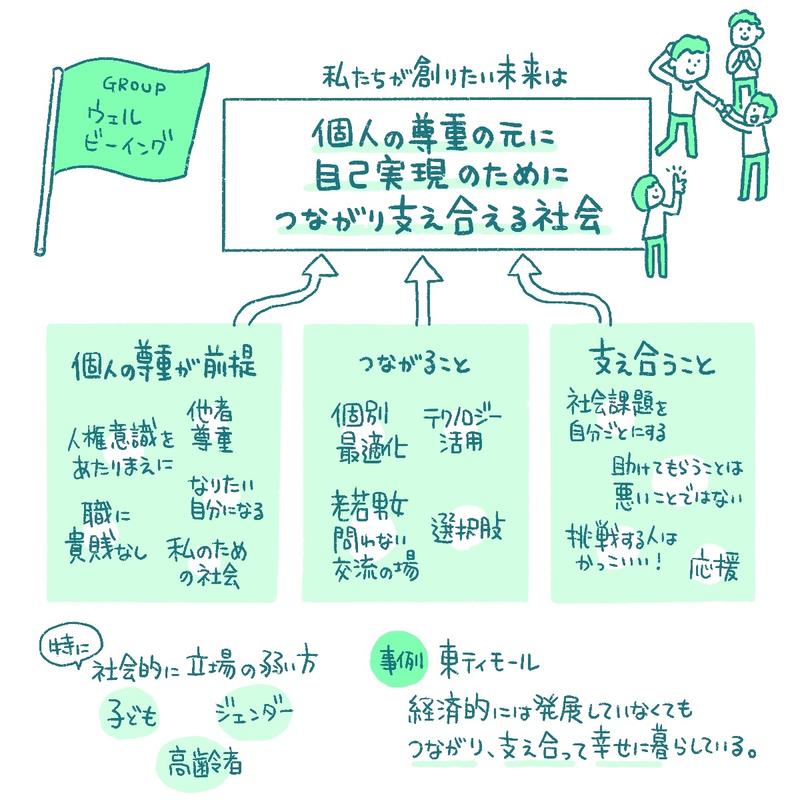 GROUP
ウェル
ビーイング
私たちが創りたい未来は
個人の尊重の元に
自己実現のために
つながり支え合える社会
個人の尊重が前提
人権意識を
あたりまえに
他者
尊重
職に
貴賎なし
なりたい
自分になる
私のため
の社会
つながること
個別
最適化
テクノロジー
活用
老若男女
問わない
交流の場
選択肢
支え合うこと
社会課題を
自分ごとにする
助けてもらうことは
悪いことではない
挑戦する人は
かっこいい!
応援
特に
社会的に立場の弱い方
子ども
ジェンダー
高齢者
事例 東ティモール
経済的には発展していなくても
つながり、支え合って幸せに暮らしている。